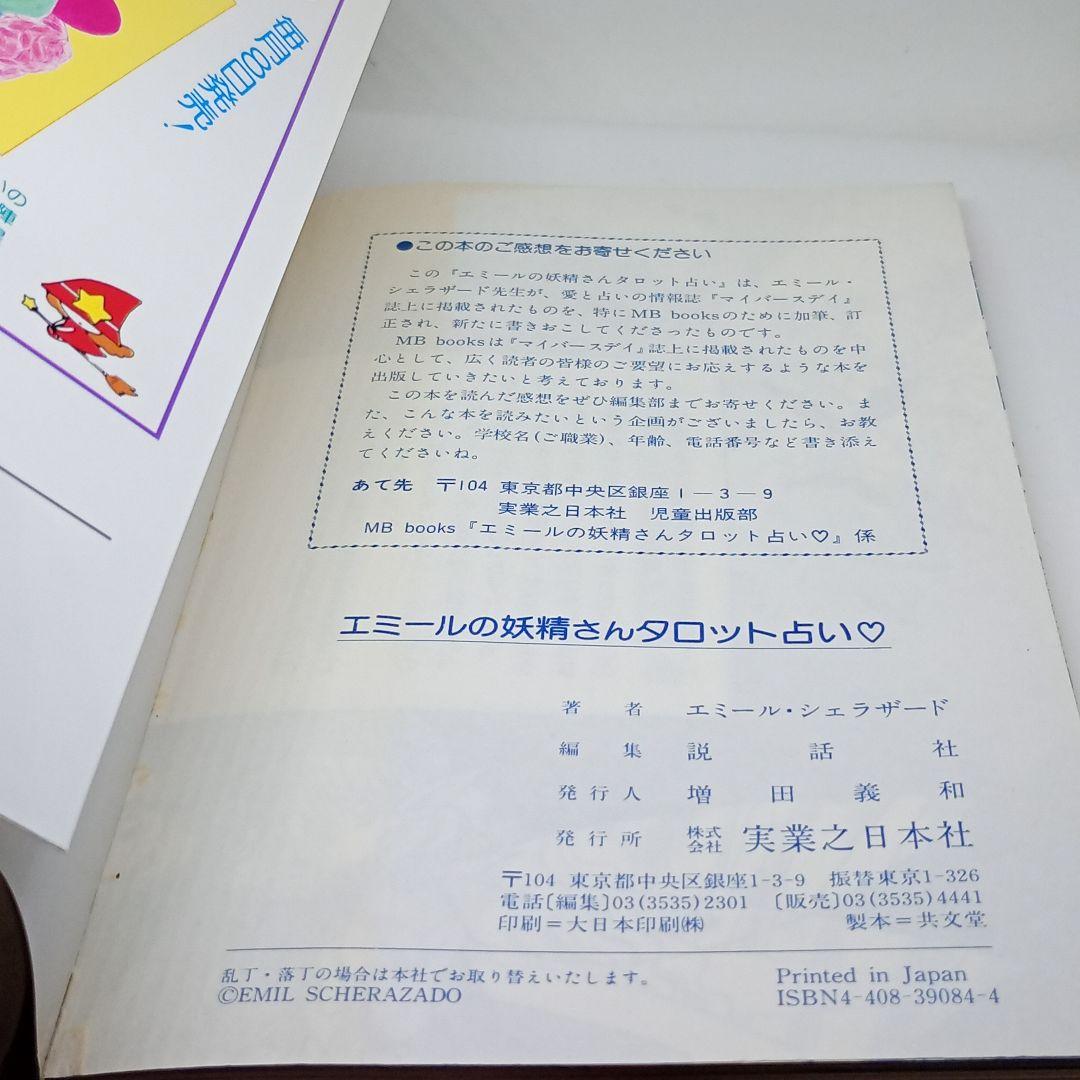 毎月8日発売!
いの
陣
●この本のご感想をお寄せください
この『エミールの妖精さんタロット占い』は、エミール・
シェラザード先生が、愛と占いの情報誌『マイバースデイ』
誌上に掲載されたものを、特にMB booksのために加筆、訂
正され、新たに書きおこしてくださったものです。
MB booksは『マイバースデイ』誌上に掲載されたものを中
心として、広く読者の皆様のご要望にお応えするような本を
出版していきたいと考えております。
この本を読んだ感想をぜひ編集部までお寄せください。ま
た、こんな本を読みたいという企画がございましたら、お教
えください。学校名(ご職業)、年齢、電話番号など書き添え
てくださいね。
あて先 〒104 東京都中央区銀座1−3−9
実業之日本社 児童出版部
MB books『エミールの妖精さんタロット占い♡』係
エミールの妖精さんタロット占い♡
著者 エミール・シェラザード
編集 説話社
発行人 増田義和
発行所 株式会社 実業之日本社
〒104 東京都中央区銀座1-3-9 振替東京1-326
電話〔編集〕03(3535)2301 〔販売〕03(3535)4441
印刷=大日本印刷㈱ 製本=共文堂
乱丁・落丁の場合は本社でお取り替えいたします。
©EMIL SCHERAZADO
Printed in Japan
ISBN4-408-39084-4